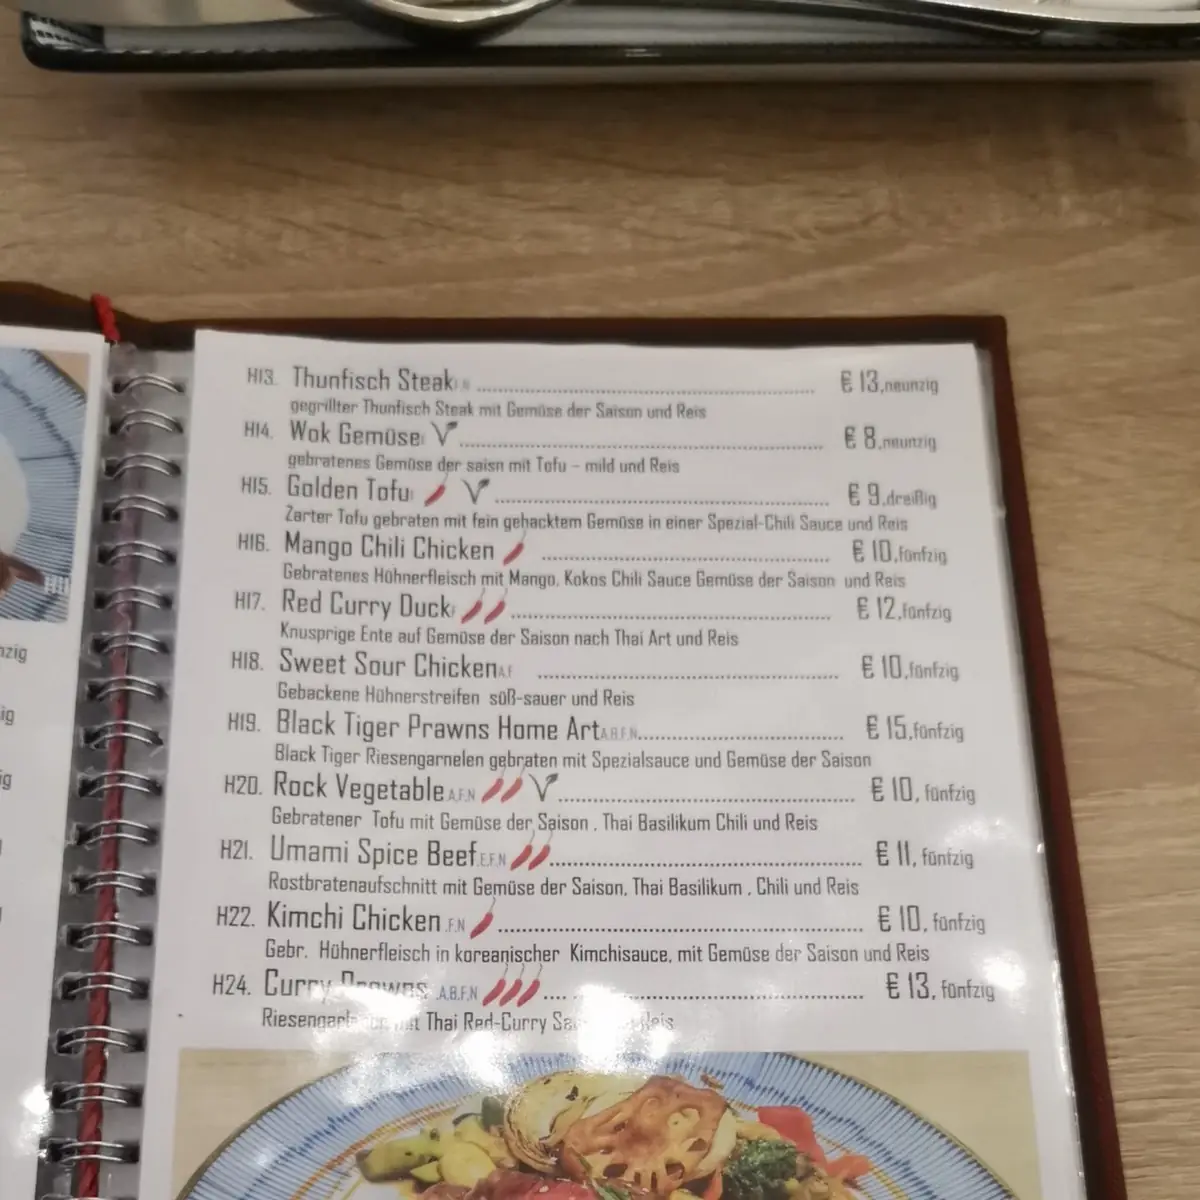 H13. Thunfisch Steak € 13,neunzig
gegrillter Thunfisch Steak mit Gemüse der Saison und Reis
H14. Wok Gemüse € 8,neunzig
gebratenes Gemüse der saisn mit Tofu - mild und Reis
H15. Golden Tofu € 9,dreißig
Zarter Tofu gebraten mit fein gehacktem Gemüse in einer Spezial-Chili Sauce und Reis
H16. Mango Chili Chicken € 10,fünfzig
Gebratenes Hühnerfleisch mit Mango, Kokos Chili Sauce Gemüse der Saison und Reis
H17. Red Curry Duck € 12,fünfzig
Knusprige Ente auf Gemüse der Saison nach Thai Art und Reis
H18. Sweet Sour Chicken A.F € 10,fünfzig
Gebackene Hühnerstreifen süß-sauer und Reis
H19. Black Tiger Prawns Home Art A.B.F.N € 15,fünfzig
Black Tiger Riesengarnelen gebraten mit Spezialsauce und Gemüse der Saison
H20. Rock Vegetable A.F.N € 10, fünfzig
Gebratener Tofu mit Gemüse der Saison , Thai Basilikum Chili und Reis
H21. Umami Spice Beef .E.F.N € 11, fünfzig
Rostbratenaufschnitt mit Gemüse der Saison, Thai Basilikum , Chili und Reis
H22. Kimchi Chicken .F.N € 10, fünfzig
Gebr. Hühnerfleisch in koreanischer Kimchisauce, mit Gemüse der Saison und Reis
H24. Curry Prawns .A.B.F.N € 13, fünfzig
Thai Red-Curry Reis
nzig
ig
ig